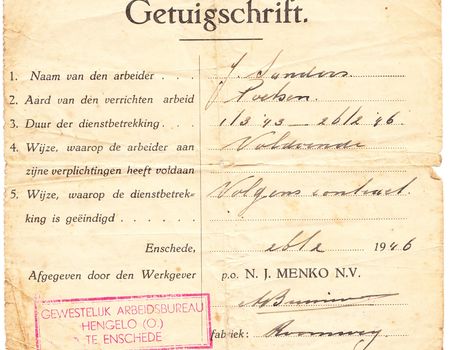 Getuigschrift.
1. Naam van den arbeider . . . J. Sanders.
2. Aard van den verrichten arbeid Poetsen.
3. Duur der dienstbetrekking. . . 1/3 '43 — '46
4. Wijze, waarop de arbeider aan Voldoende
zijne verplichtingen heeft voldaan
5. Wijze, waarop de dienstbetrek- Volgens contract.
king is geëindigd . . . . . .
Enschede, 1946
Afgegeven door den Werkgever p.o. N. J. MENKO N.V.
GEWESTELIJK ARBEIDSBUREAU
HENGELO (O.)
TE ENSCHEDE
fabriek: